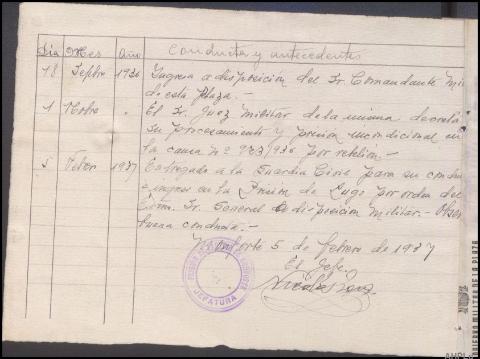 Día Mes Año Conducta y antecedentes
18 Sepbre 1936 Ingresa a disposición del Sr. Comandante Mil
de esta Plaza.-
1 Nobre " El Sr. Juez Militar de la misma decreta
su procesamiento y prisión incondicional en
la causa nº 923/936 por rebelión.-
5 Febro 1937 Entregado a la Guardia Civil para su condu
e ingreso en la Prisión de Lugo por orden del
Excmo. Sr. General a disposición militar.- Obser
buena conducta.-
Monforte 5 de febrero de 1937
El Jefe.
JEFATURA